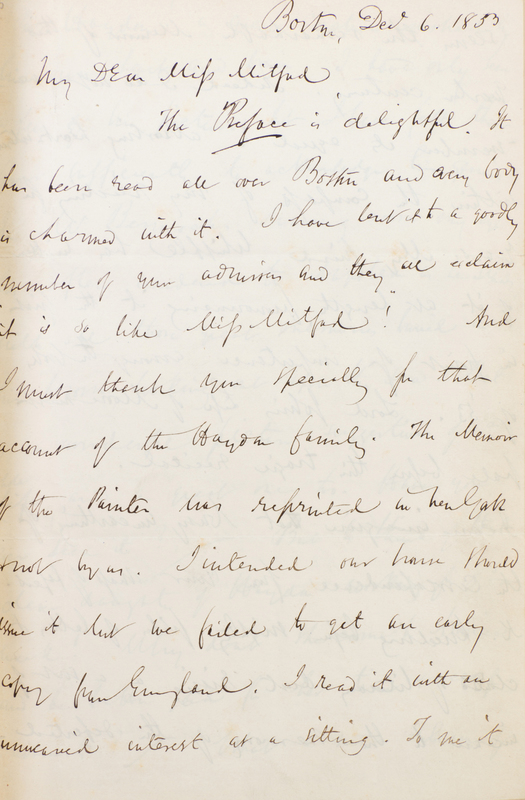 Boston, Dec 6. 1853
My Dear Miss Mitford,
The Preface is delightful. It
has been read all over Boston and every body
is charmed with it. I have lent it to a goodly
number of your admirers and they all exclaim
"it is so like Miss Mitford"! And
I must thank you specially for that
account of the Haydon family. The Memoir
of the Painter was reprinted in New York
& not by us. I intended our house should
issue it but we failed to get an early
copy from England. I read it with an
unwearied interest at a sitting. To me it